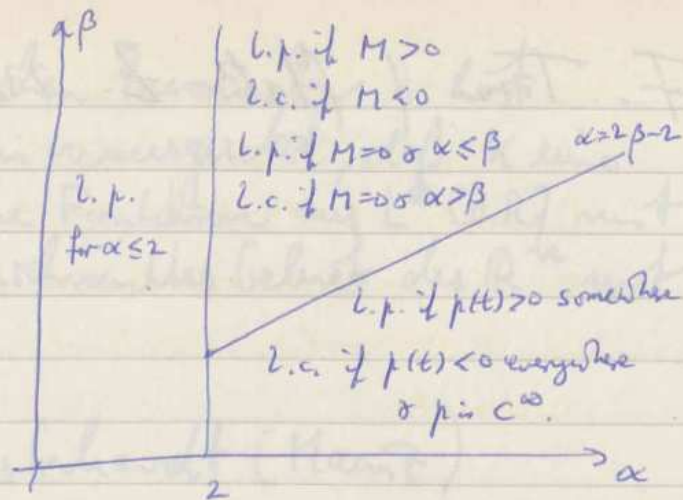 β
l.p. if M > 0
l.c. if M < 0
l.p. if M = 0 & α ≤ β
l.c. if M = 0 & α > β
α = 2β - 2
l.p.
for α ≤ 2
l.p. if p(t) > 0 somewhere
l.c. if p(t) < 0 everywhere
& p is C^∞.
2
α